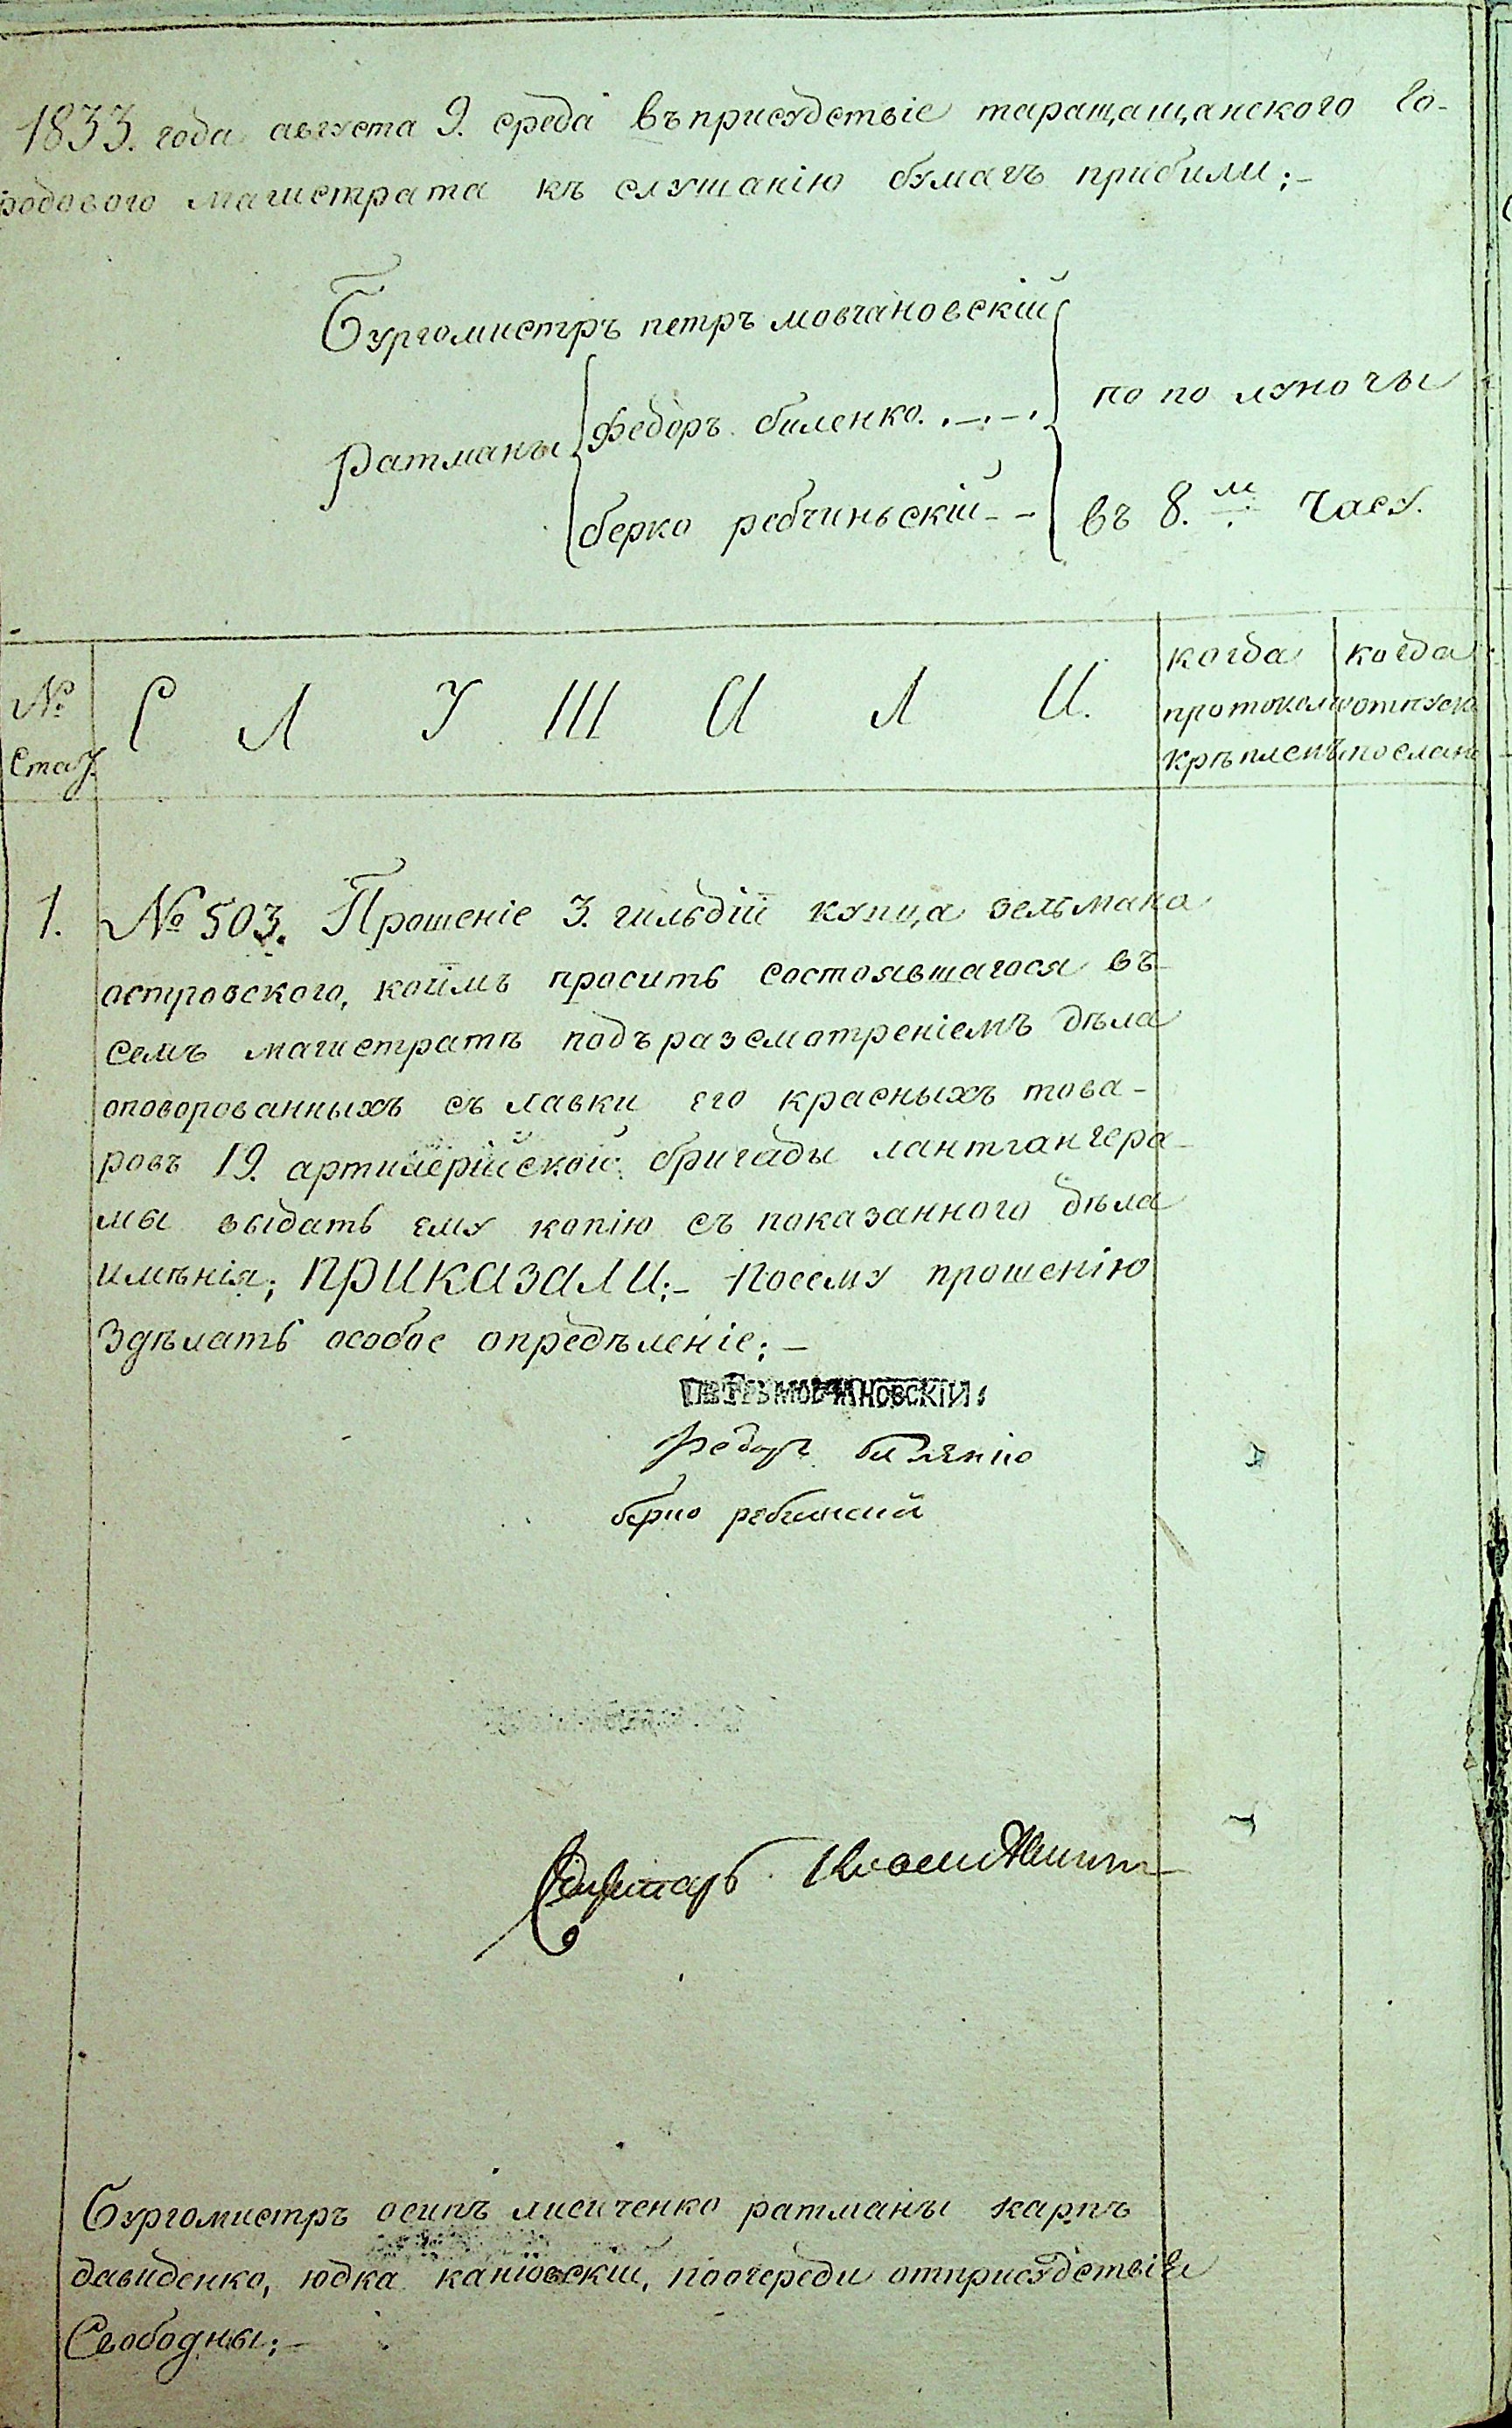 1833. года августа 9. среда въ присудствіе таращащанского го-
родового магистрата къ слушанію бумагъ прибили;-
Бургомистръ петръ мовчановскій
ратманы
федоръ биленко.
по полуночы
берко ребчиньскій
въ 8.м часу.
№ Стат.
С Л У Ш И Л И.
когда протоколъ крѣпленъ
когда отпускъ посланъ
1.
№ 503. Прошеніе 3. гильдій купца зельмана
островского, коимъ просить состоявшагося въ
семъ магистратѣ подъ разсмотреніемъ дѣла
оповорованныхъ съ лавки его красныхъ това-
ровъ 19. артилерійской бригады лантгангера-
мы выдать ему копію съ показанного дѣла
имѣнія; приказали;- Посему прошенію
Здѣлать особое опредѣленіе;-
ПЕТРЪ МОВЧАНОВСКІЙ
Федоръ билянко
берко ребчинский
Секретарь
бургомистръ осипъ лисиченко ратманы карпъ
давиденко, юдка каніовскій, поочереди отприсудствія
Свободны;-